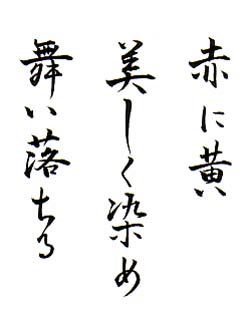 赤に黄
美しく染め
舞い落ちる